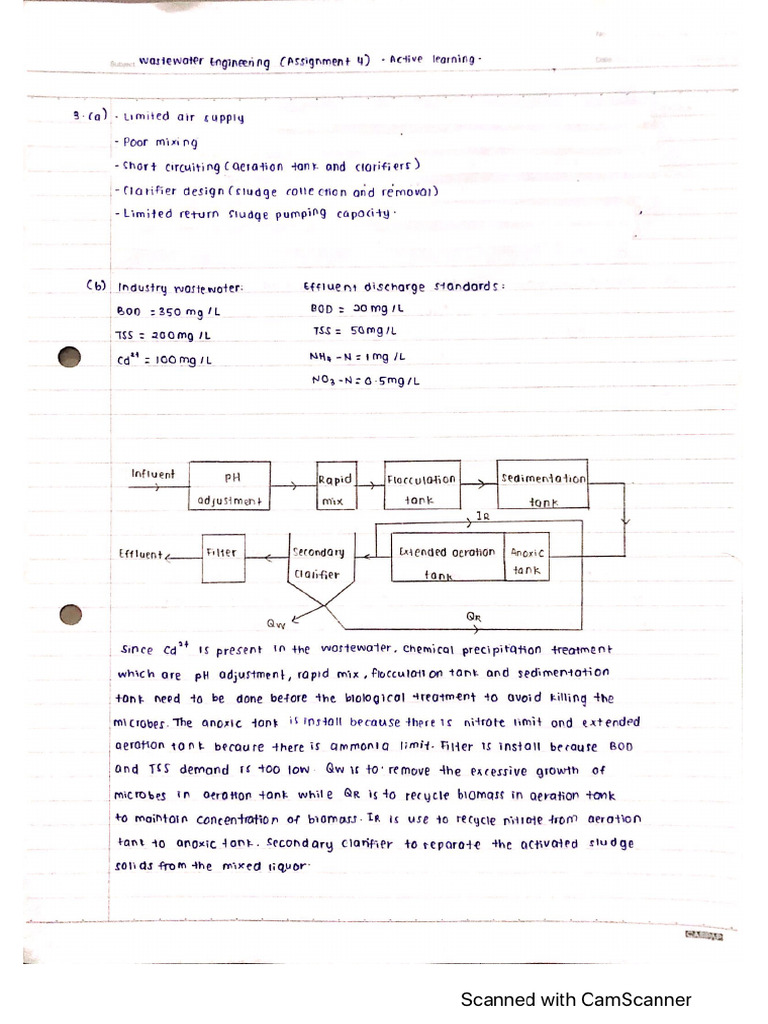 No:
Subject: Wastewater Engineering (Assignment 4) - Active learning.
Date:
3.(a) - Limited air supply
- Poor mixing
- Short circuiting (aeration tank and clarifiers)
- Clarifier design (sludge collection and removal)
- Limited return sludge pumping capacity.
(b) Industry wastewater: Effluent discharge standards:
BOD = 350 mg/L BOD = 20 mg/L
TSS = 200 mg/L TSS = 50 mg/L
Cd²⁺ = 100 mg/L NH₃-N = 1 mg/L
NO₃-N = 0.5 mg/L
Influent PH Rapid Flocculation Sedimentation
adjustment mix tank tank
IR
Effluent Filter Secondary Extended aeration Anoxic
clarifier tank tank
Qw QR
Since Cd²⁺ is present in the wastewater, chemical precipitation treatment
which are pH adjustment, rapid mix, flocculation tank and sedimentation
tank need to be done before the biological treatment to avoid killing the
microbes. The anoxic tank is install because there is nitrate limit and extended
aeration tank because there is ammonia limit. Filter is install because BOD
and TSS demand is too low. Qw is to remove the excessive growth of
microbes in aeration tank while QR is to recycle biomass in aeration tank
to maintain concentration of biomass. IR is use to recycle nitrate from aeration
tank to anoxic tank. Secondary clarifier to separate the activated sludge
solids from the mixed liquor.
CAMPAP
Scanned with CamScanner